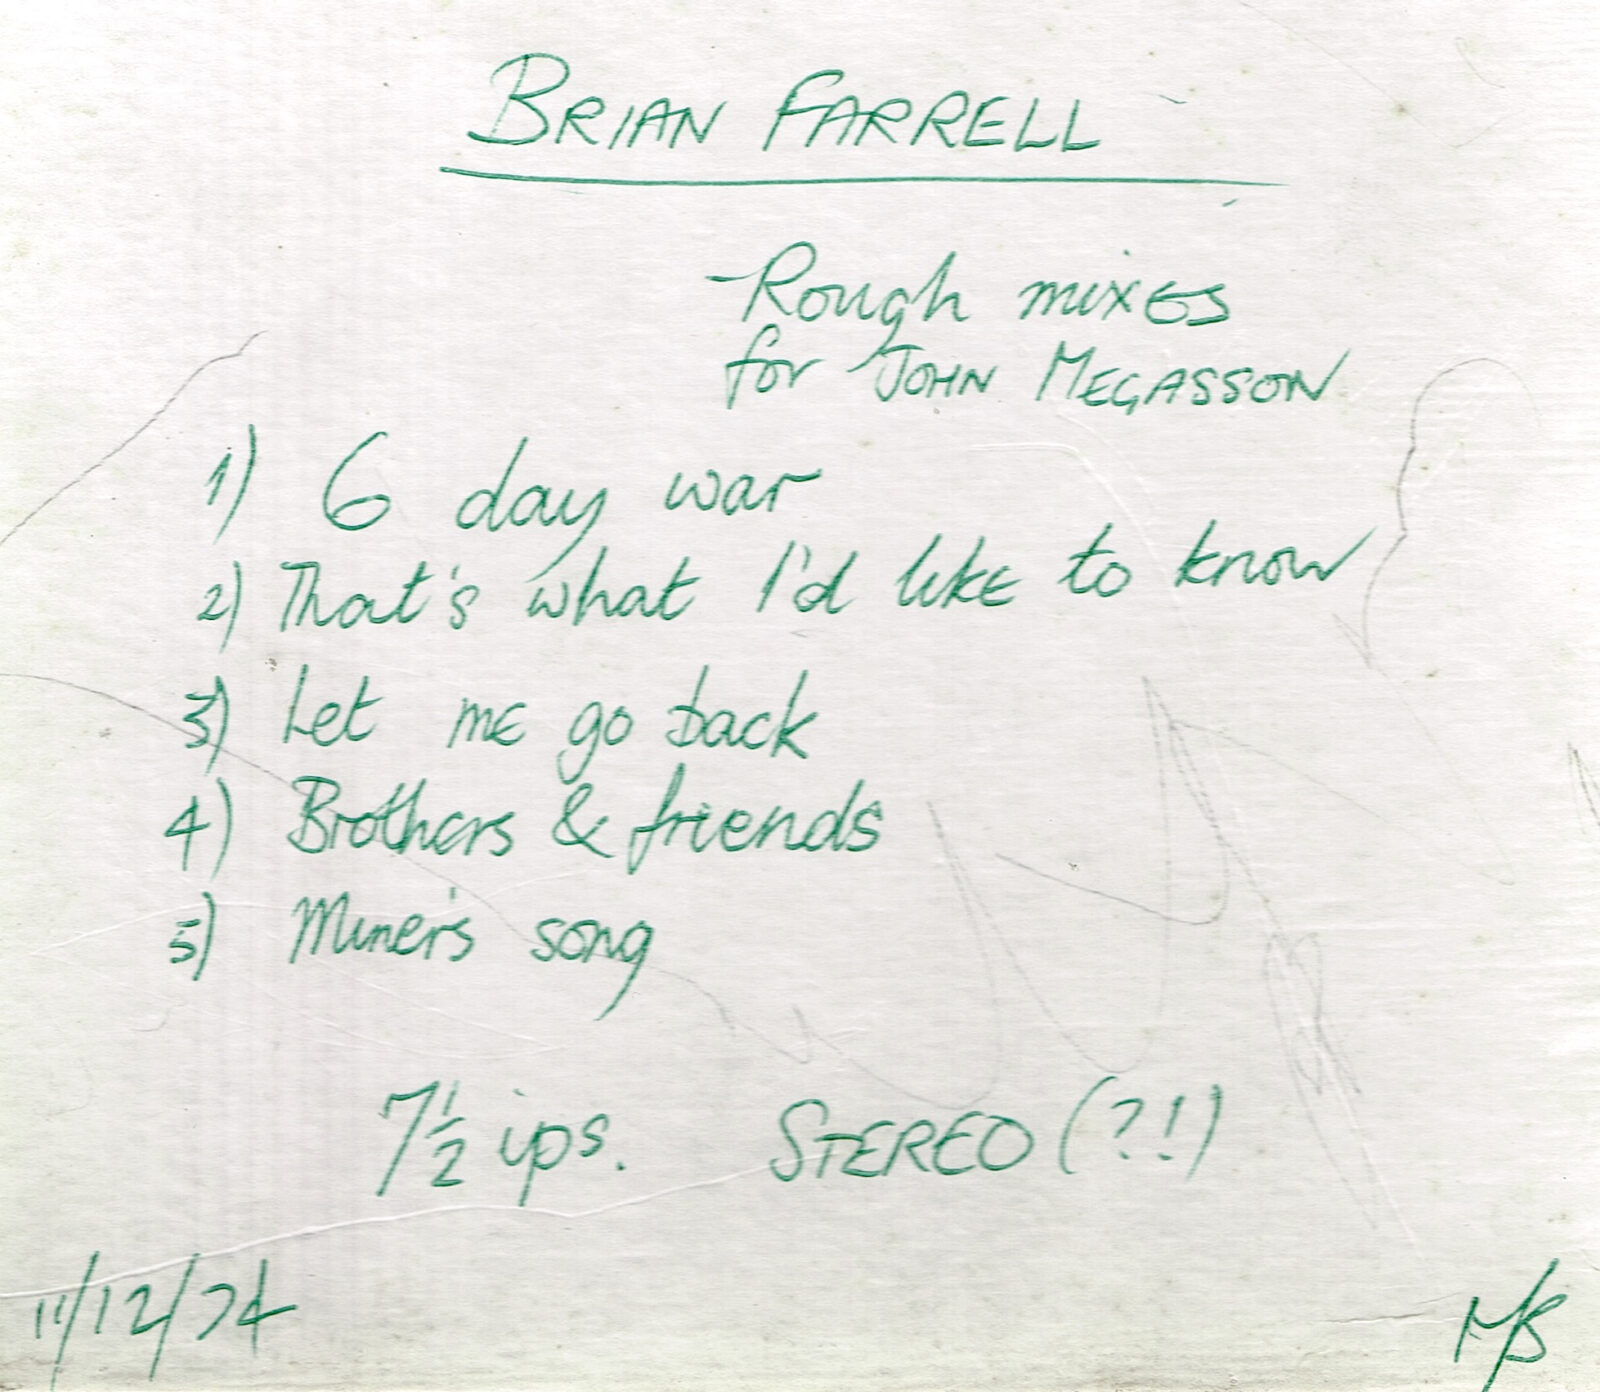 BRIAN FARRELL
Rough mixes
for JOHN MEGASSON
1) 6 day war
2) That's what I'd like to know
3) Let me go back
4) Brothers & friends
5) Miner's song
7½ ips. STEREO (?!)
11/12/74
M/B